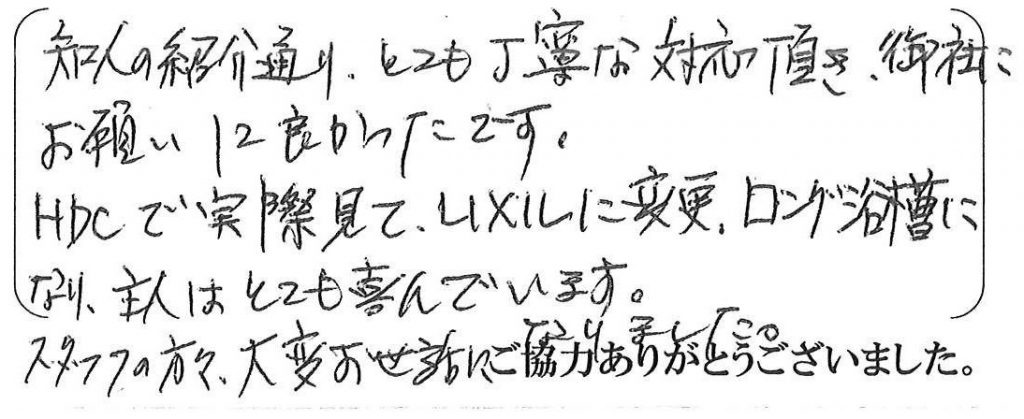 知人の紹介通り、とても丁寧な対応頂き、御社に
お願いして良かったです。
HDCで実際見て、LIXILに変更、ロング浴槽に
なり、主人はとても喜んでいます。
スタッフの方々、大変お世話になりました。
ご協力ありがとうございました。